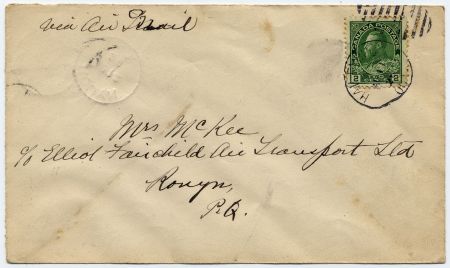 via Air Mail
CANADA POSTAGE
2 2
Mrs McKee
c/o Elliot Fairchild Air Transport Ltd
Rouyn,
P.Q.